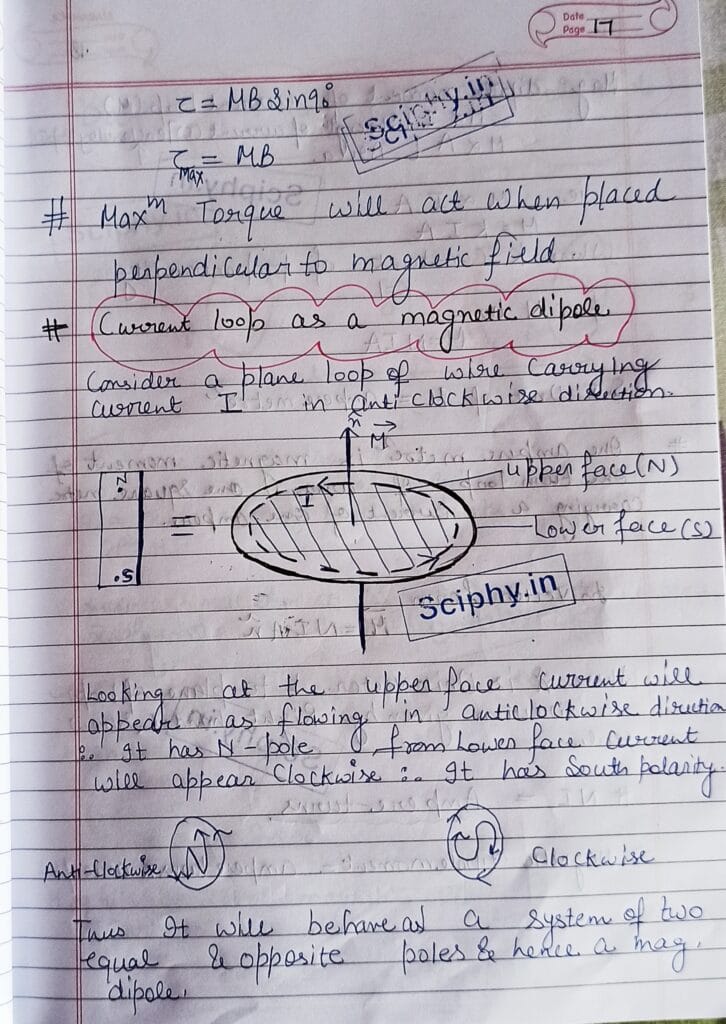 Date
Page 17
τ = MB Sin90°
Sciphy.in
τMax = MB
# Maxᵐ Torque will act when placed
perpendicular to magnetic field.
# Current loop as a magnetic dipole
Consider a plane loop of wire carrying
current I in anti clockwise direction.
n̂
M⃗
N
I
upper face (N)
=
Lower face (S)
S
Sciphy.in
Looking at the upper face current will
appear as flowing in anticlockwise direction
∴ It has N-pole from Lower face Current
will appear Clockwise ∴ It has South polarity.
Anti-Clockwise N S Clockwise
Thus It will behave as a system of two
equal & opposite poles & hence a mag.
dipole.